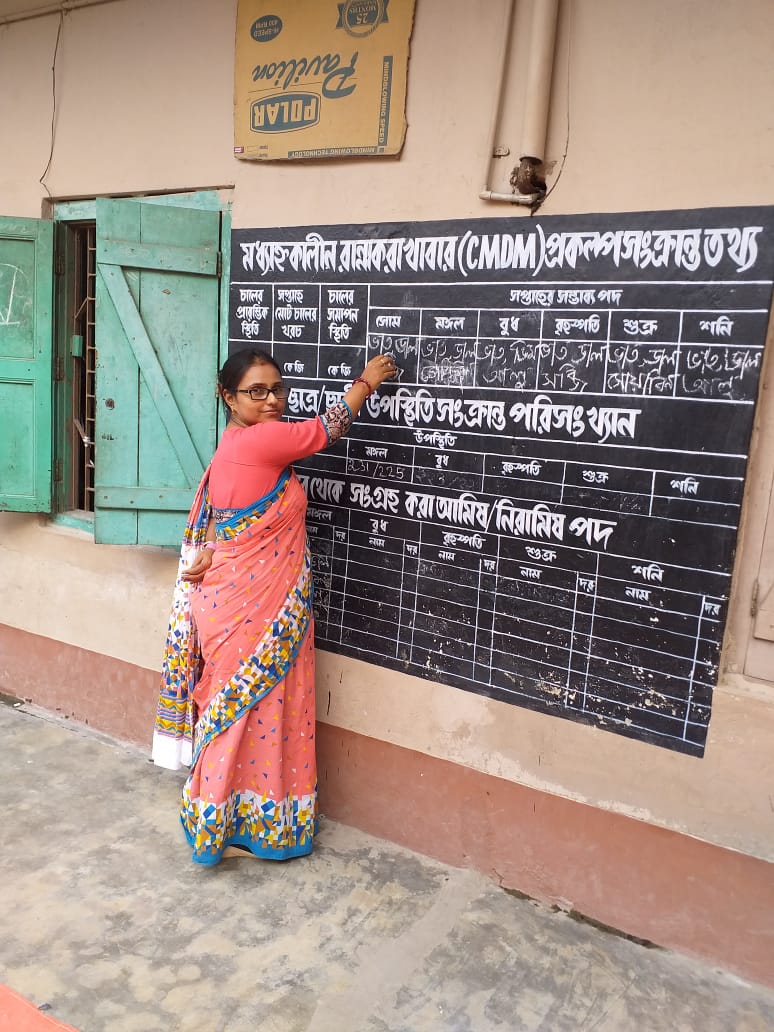 HI-SPEED
400 RPM
25
MONTHS
Pavilion
POLAR
MINDBLOWING SPEED
MINDBLOWING TECHNOLOGY
মধ্যাহ্নকালীন রান্নাকরা খাবার (CMDM) প্রকল্প সংক্রান্ত তথ্য
চালের প্রারম্ভিক স্থিতি
সপ্তাহে মোট চালের খরচ
চালের সমাপন স্থিতি
সপ্তাহের সম্ভাব্য পদ
সোম মঙ্গল বুধ বৃহস্পতি শুক্র শনি
কেজি কেজি
ভাত, ডাল
ভাত, ডাল সোয়াবিন
ভাত, ডিম আলু
ভাত, ডাল সব্জি
ভাত, ডাল সোয়াবিন
ভাত, ডাল আলু
ছাত্র/ উপস্থিতি সংক্রান্ত পরিসংখ্যান
উপস্থিতি
মঙ্গল বুধ বৃহস্পতি শুক্র শনি
/225
থেকে সংগ্রহ করা আমিষ/নিরামিষ পদ
মঙ্গল বুধ বৃহস্পতি শুক্র শনি
নাম দর নাম দর নাম দর নাম দর নাম দর